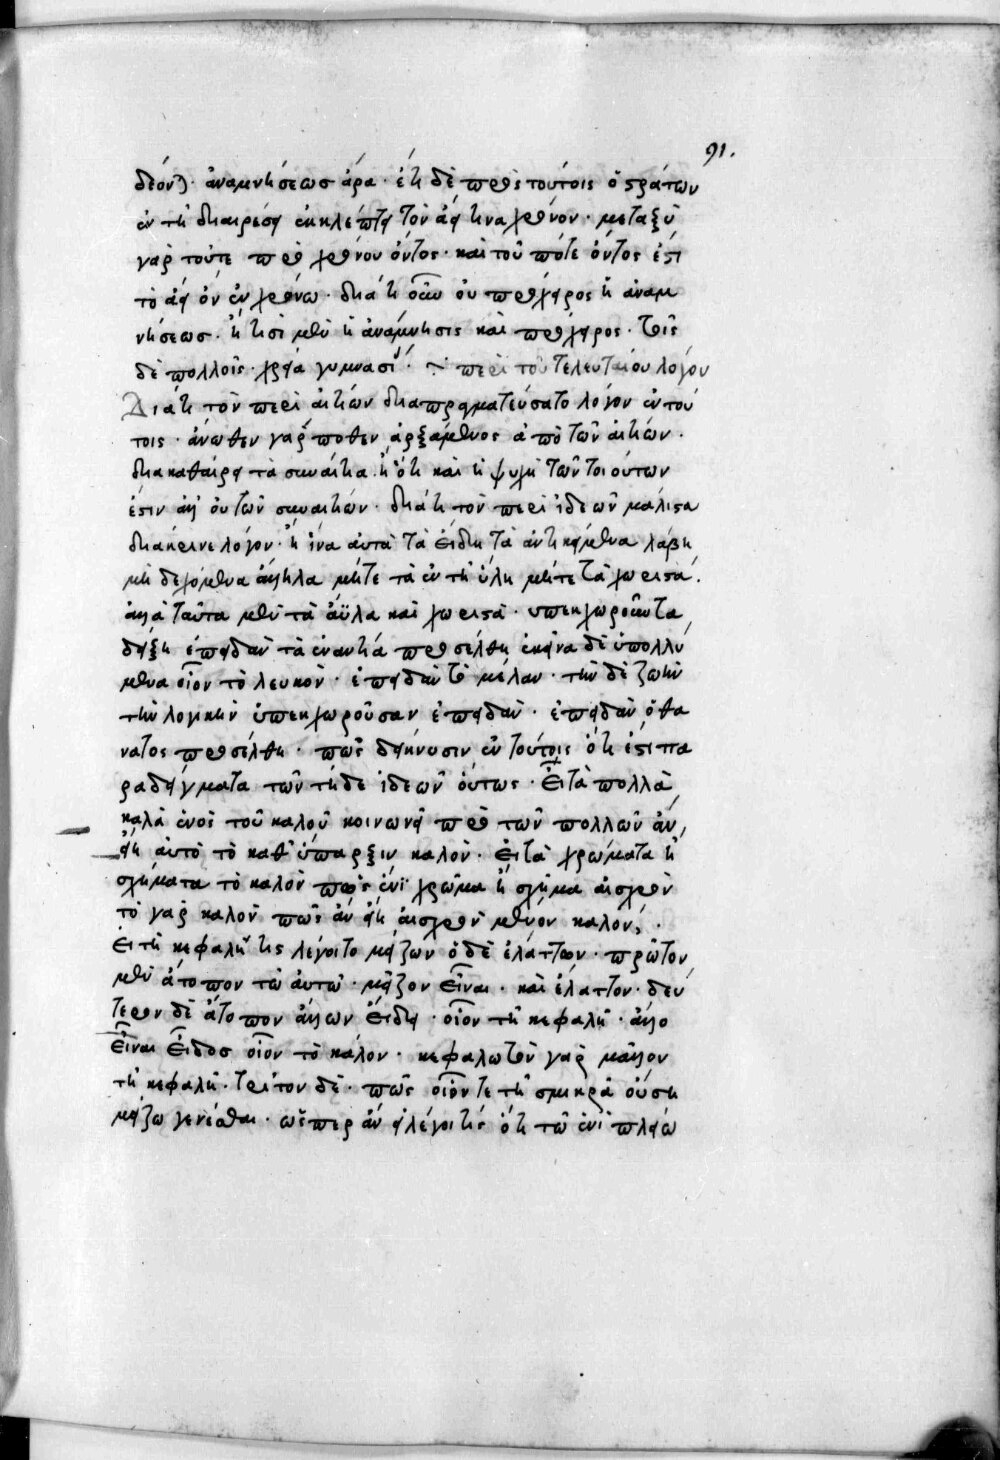 91.
δέον()· ἀναμνήσεως ἄρα· ἔτι δὲ πρὸς τούτοις ὁ στράτων
ἐν τῆ διαιρέσει ἐκκλέπτει τὸν ἄφ τινα χρόνον· μεταξὺ
γὰρ τούτε προ χρόνου ὄντος· καὶ τοῦ πότε ὄντος ἐστι
τὸ ἄφ ὃν ἐν χρόνω· διά τι οὖν οὐ πρόχειρος ἡ ἀναμ
νήσεως· ἤ τισὶ μὲν ἡ ἀνάμνησις καὶ πρόχειρος· τοῖς
δὲ πολλοῖς χρεία γυμνασίου· περὶ τοῦ τελευταίου λόγου
Διά τι τὸν περὶ αἰτιῶν διαπραγματεύσατο λόγον ἐν τού
τοις· ἄνωθεν γάρ ποθεν ἀρξάμενος ἀπὸ τῶν αἰτιῶν·
διακαθαίρει τὰ συναίτια· ἢ ὅτι καὶ ἡ ψυχὴ τῶν τοιούτων
ἐστιν ἀλλ' οὐ τῶν συναιτιῶν· διά τι τὸν περὶ ἰδεῶν μάλιστα
διακρινε λόγον· ἢ ἵνα αὐτὰ τὰ εἴδη τὰ ἀντικείμενα λάβη
μὴ δεχόμενα ἄλληλα μήτε τὰ ἐν τῆ ὕλη μήτε τὰ χωριστά·
ἀλλὰ ταῦτα μὲν τὰ ἄϋλα καὶ χωριστὰ· υπεκχωροῦντα
δείξη ἐπειδὰν τὰ ἐναντία προσέλθη ἐκεῖνα δὲ ἀπολλύ
μενα οἷον τὸ λευκὸν· ἐπειδὰν τὸ μέλαν· τὴν δὲ ζωὴν
τὴν λογικὴν ὑπεκχωροῦσαν ἐπειδὰν· ἐπειδὰν ὁ θά
νατος προσέλθη· πῶς δείκνυσιν ἐν τούτοις ὅτι ἐστι πα
ραδείγματα τῶν τῆδε ἰδεῶν οὕτως· εἰ τὰ πολλὰ
καλὰ ἑνὸς τοῦ καλοῦ κοινωνεῖ πρὸ τῶν πολλῶν ἂν
εἴη αὐτὸ τὸ καθ' ὕπαρξιν καλὸν· εἰ τὰ χρώματα ἢ
σχήματα τὸ καλὸν πῶς ἑνὶ χρῶμα ἢ σχῆμα αἰσχρὸν
τὸ γὰρ καλὸν πῶς ἂν εἴη αἰσχρὸν μένον καλὸν·
εἰ τῆ κεφαλῆ τις λέγοιτο μείζων ὁ δὲ ἐλάττων· πρῶτον
μὲν ἄτοπον τῶ αὐτῶ· μεῖζον εἶναι· καὶ ἔλαττον· δεύ
τερον δὲ ἄτοπον ἄλλων εἴδει· οἷον τῆ κεφαλῆ· ἄλλο
εἶναι εἶδος οἷον τὸ κάλον· κεφαλωτὸν γὰρ μᾶλλον
τῆ κεφαλῆ· τρίτον δὲ· πῶς οἷόν τε τῆ σμικρᾶ οὔση
μείζω γενέσθαι· ὥσπερ ἂν εἰ λέγοι τίς ὅτι τῶ ἑνὶ πλείω